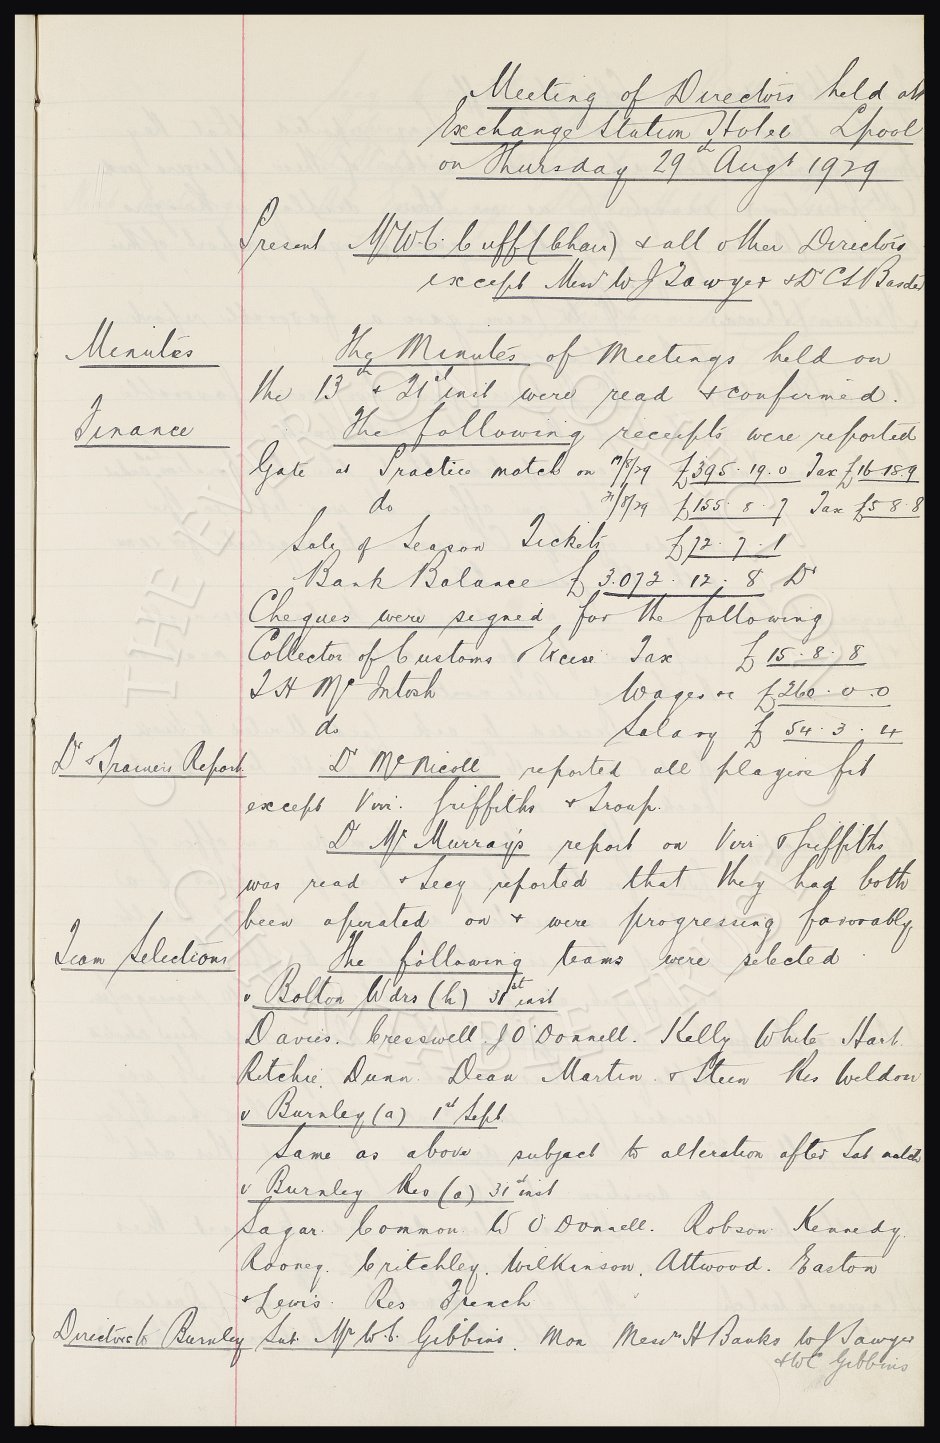 Meeting of Directors held at
Exchange Station Hotel Lpool
on Thursday 29th Augt 1929
Present Mr W.C. Cuff (Chair) & all other Directors
except Messrs W J Sawyer & Dr C S Baxter
Minutes The Minutes of Meetings held on
the 13th & 21st inst were read & confirmed.
Finance The following receipts were reported
Gate at Practice match on 17/8/29 £395.19.0 Tax £16.18.9
do 21/8/29 £155.8.7 Tax £5 8 8
Sale of Season Tickets £72.7.1
Bank Balance £3.072.12.8 Dr
Cheques were signed for the following
Collector of Customs & Excise Tax £15.8.8
T H McIntosh Wages &c £260.0.0
do Salary £54.3.4
Dr & Trainers Report Dr McNicoll reported all players fit
except Virr. Griffiths & Troup.
Dr McMurray's report on Virr & Griffiths
was read & Secy reported that they had both
been operated on & were progressing favorably
Team Selections The following teams were selected
v Bolton Wdrs (h) 31st inst
Davies. Cresswell. J O'Donnell. Kelly White Hart.
Ritchie. Dunn. Dean Martin & Stein Res Weldon
v Burnley (a) 1st Sept
Same as above subject to alteration after Sat match
v Burnley Res (a) 31st inst
Sagar. Common. W O'Donnell. Robson. Kennedy.
Rooney. Critchley. Wilkinson. Attwood. Easton
& Lewis. Res French
Directors to Burnley Sat. Mr W.C. Gibbins. Mon Messrs H Banks W J Sawyer
& W C Gibbins
THE EVERTON COLLECTION
CHARITABLE TRUST